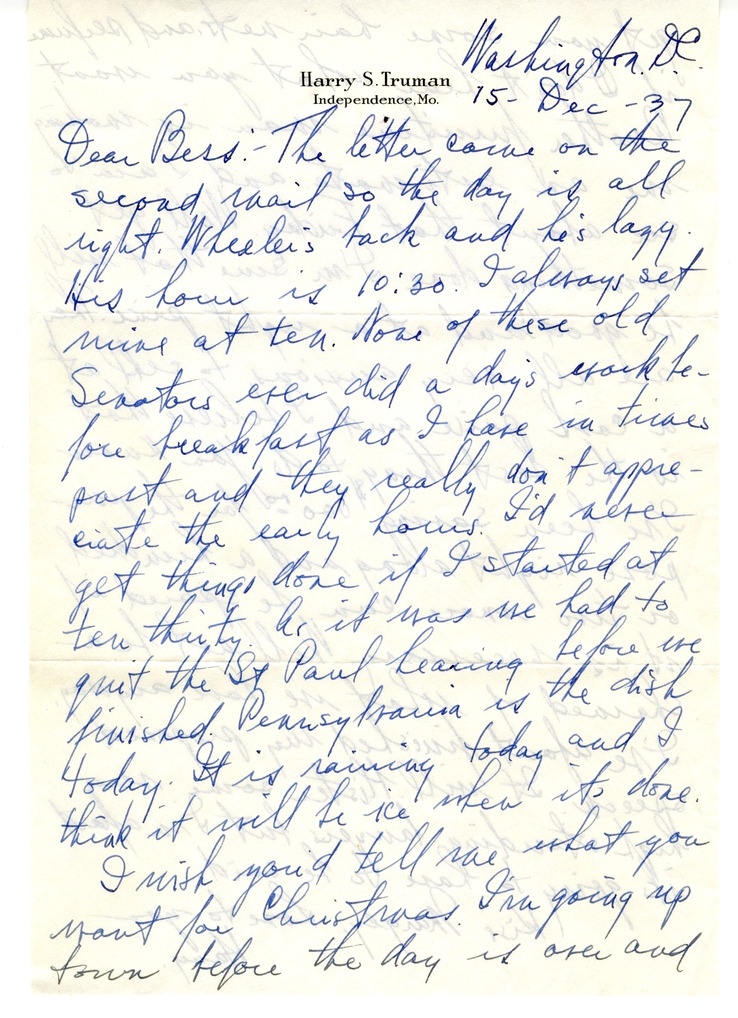 Washington, D.C.
Harry S. Truman
Independence, Mo.
15- Dec - 37
Dear Bess:- The letter came on the
second mail so the day is all
right. Wheeler's back and he's lazy.
His hour is 10:30. I always set
mine at ten. None of these old
Senators ever did a days work be-
fore breakfast as I have in times
past and they really don't appre-
ciate the early hours. I'd never
get things done if I started at
ten thirty. As it was we had to
quit the St Paul hearing before we
finished. Pennsylvania is the dish
today. It is raining today and I
think it will be ice when its done.
I wish you'd tell me what you
want for Christmas. I'm going up
town before the day is over and